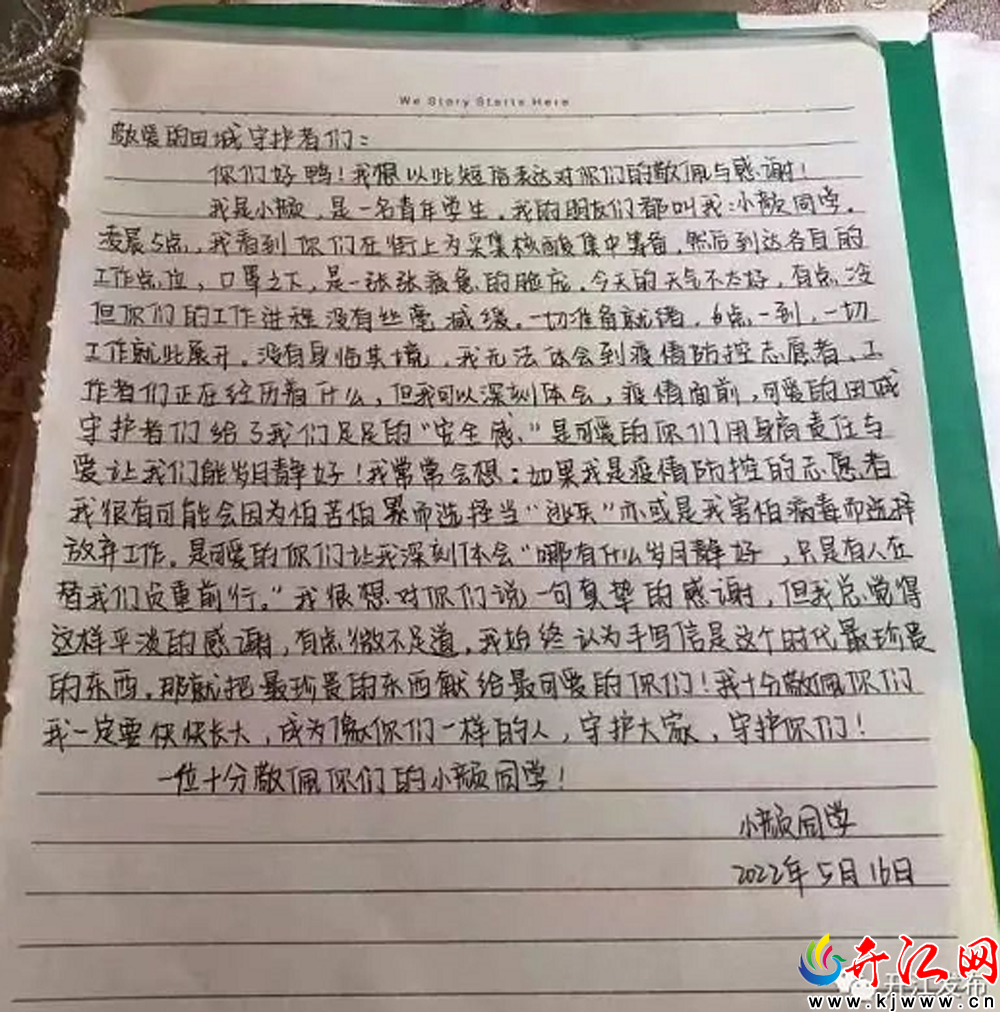 We Story Starts Here
敬爱的田城守护者们：
你们好鸭！我很以此短信表达对你们的敬佩与感谢！
我是小颜，是一名青年学生，我的朋友们都叫我：小颜同学。
凌晨5点，我看到你们在街上为采集核酸集中筹备，然后到达各自的
工作点位，口罩之下，是一张张疲惫的脸庞。今天的天气不太好，有点冷
但你们的工作进程没有丝毫减缓。一切准备就绪，6点一到，一切
工作就此展开。没有身临其境，我无法体会到疫情防控志愿者、工
作者们正在经历着什么，但我可以深刻体会，疫情面前，可爱的田城
守护者们给了我们足足的“安全感”是可爱的你们用身肩责任与
爱让我们能岁月静好！我常常会想：如果我是疫情防控的志愿者
我很有可能会因为怕苦怕累而选择当“逃兵”亦或是我害怕病毒而选择
放弃工作。是可爱的你们让我深刻体会“哪有什么岁月静好，只是有人在
替我们负重前行。”我很想对你们说一句真挚的感谢，但我总觉得
这样平淡的感谢，有点微不足道，我始终认为手写信是这个时代最珍贵
的东西，那就把最珍贵的东西献给最可爱的你们！我十分敬佩你们
我一定要快快长大，成为像你们一样的人，守护大家，守护你们！
一位十分敬佩你们的小颜同学！
小颜同学
2022年5月16日
开江网
开江发布
www.kjwww.cn